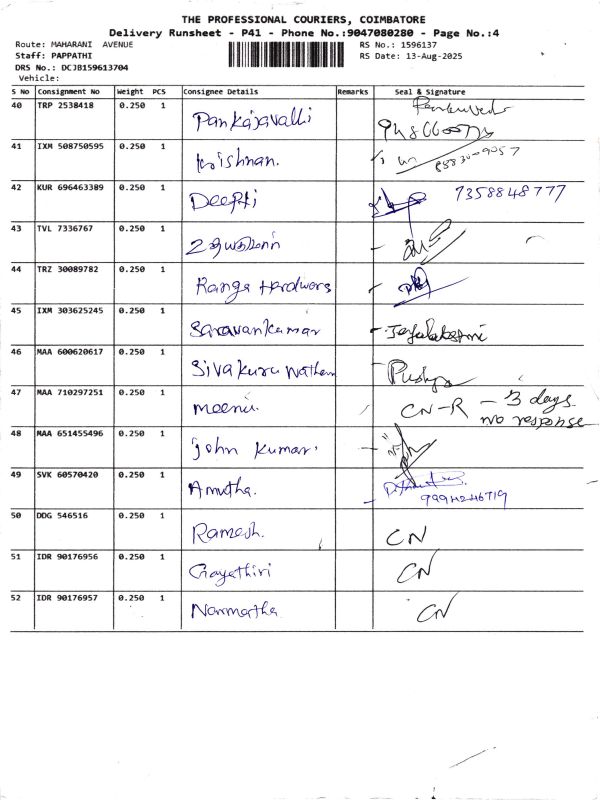 THE PROFESSIONAL COURIERS, COIMBATORE
Delivery Runsheet - P41 - Phone No.:9047080280 - Page No.:4
Route: MAHARANI AVENUE
RS No.: 1596137
Staff: PAPPATHI
RS Date: 13-Aug-2025
DRS No.: DCJB159613704
Vehicle:
S No Consignment No Weight PCS Consignee Details Remarks Seal & Signature
40 TRP 2538418 0.250 1 Pankajavalli
41 IXM 508750595 0.250 1 Krishnan.
42 KUR 696463389 0.250 1 Deepti 7358848777
43 TVL 7336767 0.250 1
44 TRZ 30089782 0.250 1 Ranga Hardwors
45 IXM 303625245 0.250 1 Saravankumar
46 MAA 600620617 0.250 1 Sivakuru Nathan Pushpa
47 MAA 710297251 0.250 1 meenu. CN-R - 3 days
no response
48 MAA 651455496 0.250 1 john kumar.
49 SVK 60570420 0.250 1 Amutha.
50 DDG 546516 0.250 1 Ramesh. CN
51 IDR 90176956 0.250 1 Gayathiri CN
52 IDR 90176957 0.250 1 Narmartha CN